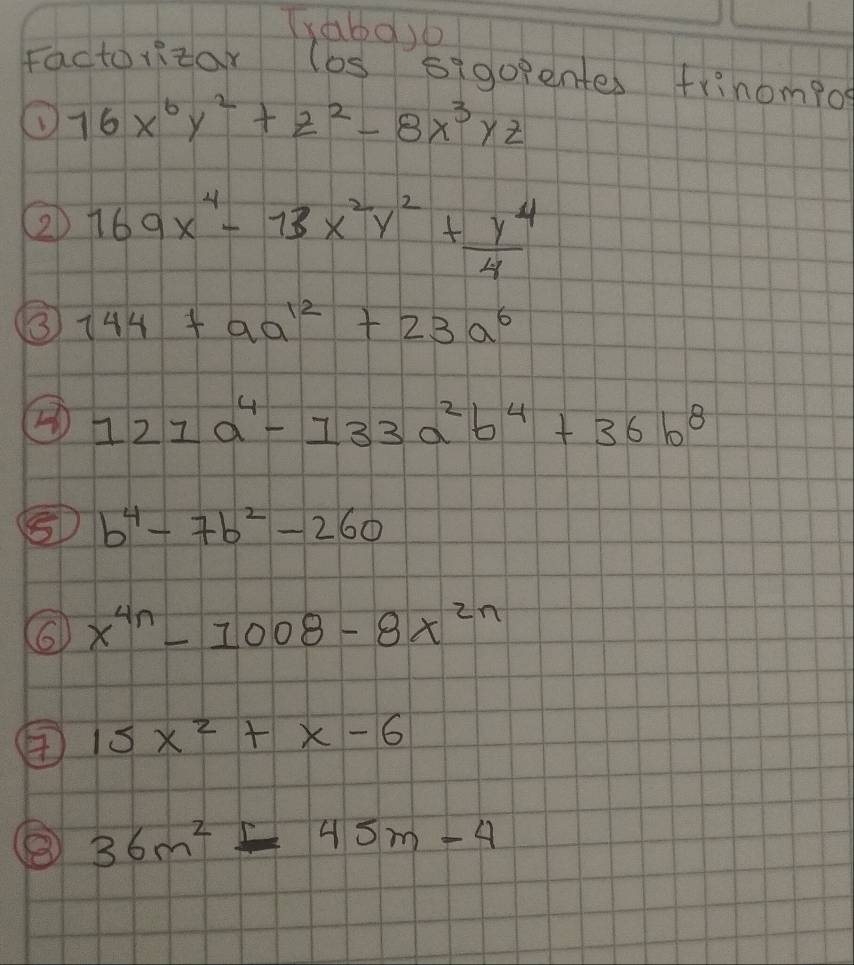 Trabajo
Factorizar los sigoientes trinomios
① 16x⁶y² + z² - 8x³yz
② 169x⁴ - 13x²y² + y⁴/4
③ 144 + 9a¹² + 23a⁶
④ 121a⁴ - 133a²b⁴ + 36b⁸
⑤ b⁴ - 7b² - 260
⑥ x⁴ⁿ - 1008 - 8x²ⁿ
⑦ 15x² + x - 6
⑧ 36m² - 45m - 4